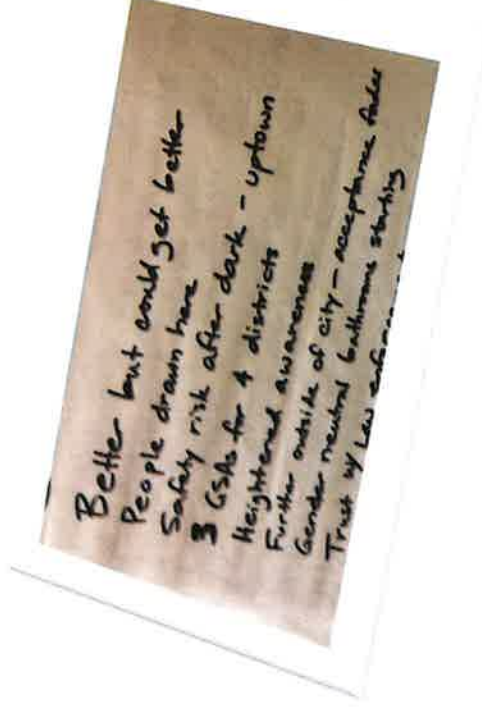 Better but could get better
People drawn here
Safety risk after dark - uptown
3 GSAs for 4 districts
Heightened awareness
Further outside of city - acceptance fades
Gender neutral bathrooms starting
Trust w/ Law enforcement